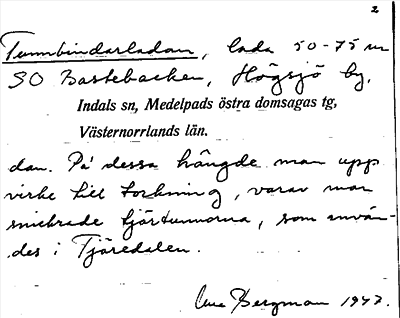 2
Tunnbindarladan, lada 50-75 m
SO Bastebacken, Högsjö by,
Indals sn, Medelpads östra domsagas tg,
Västernorrlands län.
dan. På dessa hängde man upp
virke till torkning, varav man
snickrade tjärtunnorna, som använ-
des i Tjäredalen.
Bergman 1943.